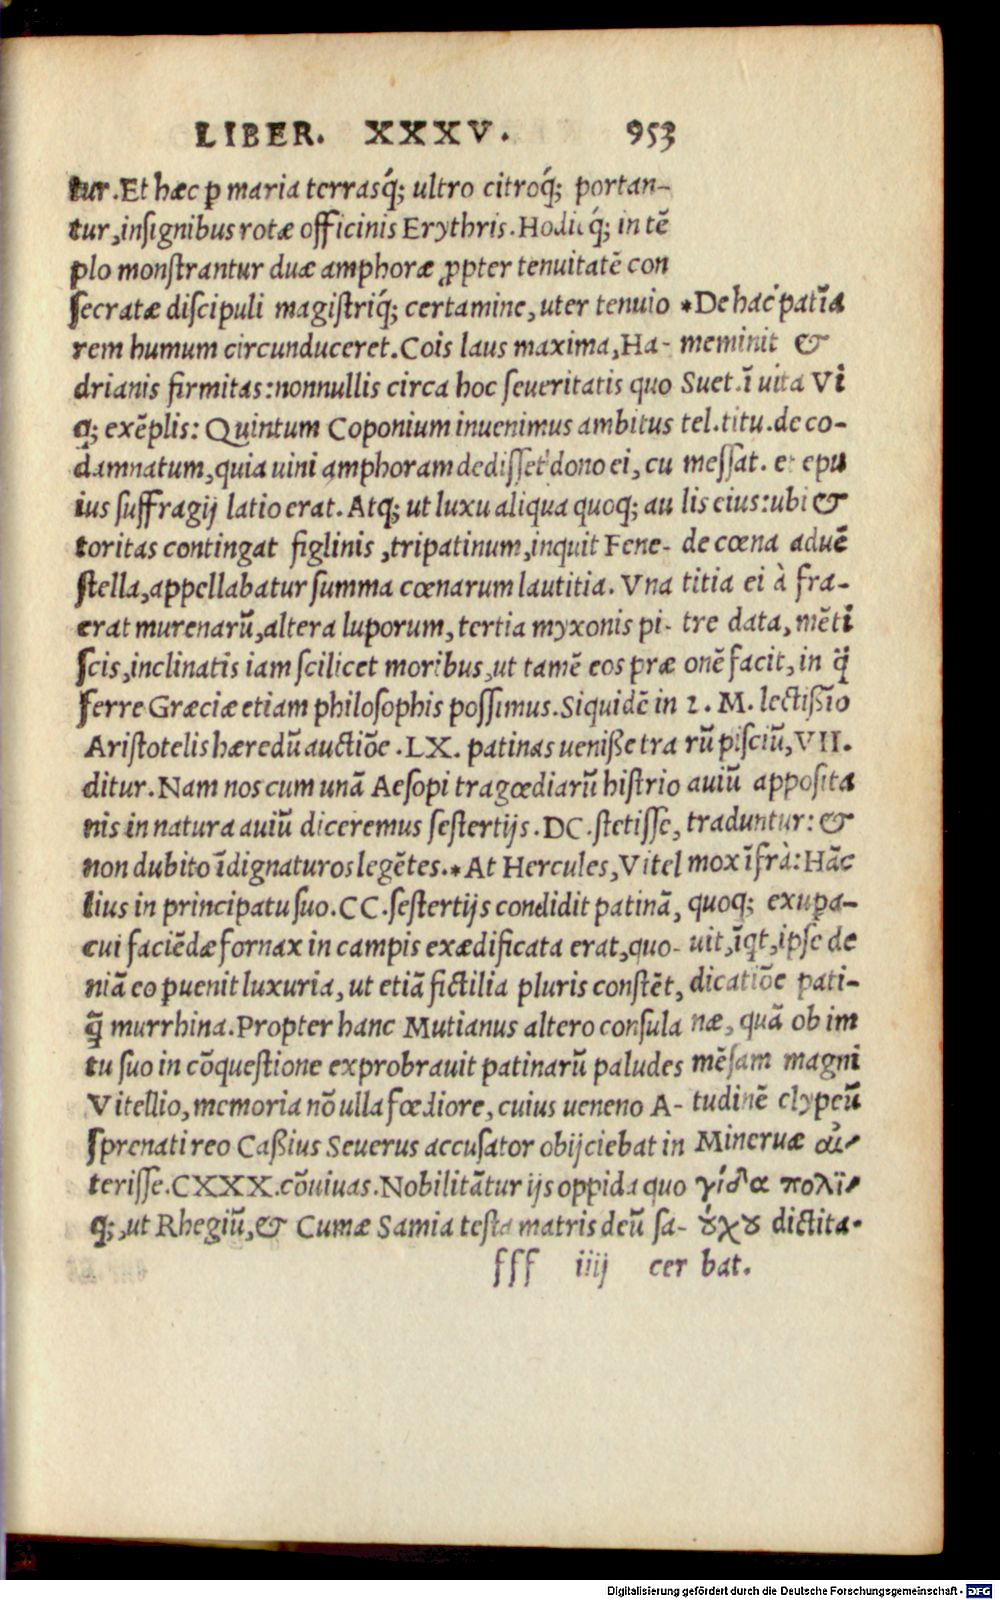 LIBER. XXXV. 953
tur. Et hæc ꝑ maria terrasq́; ultro citroq́; portan-
tur, insignibus rotæ officinis Erythris. Hodie q́; in tē
plo monstrantur duæ amphoræ ꝓpter tenuitatē con
secratæ discipuli magistriq́; certamine, uter tenuio
rem humum circunduceret. Cois laus maxima, Ha-
drianis firmitas: nonnullis circa hoc seueritatis quo
q; exēplis: Quintum Coponium inuenimus ambitus
damnatum, quia uini amphoram dedisset dono ei, cu
ius suffragij latio erat. Atq; ut luxu aliqua quoq; au
toritas contingat figlinis, tripatinum, inquit Fene-
stella, appellabatur summa cœnarum lautitia. Vna
erat murenarū, altera luporum, tertia myxonis pi-
scis, inclinatis iam scilicet moribus, ut tamē eos præ
ferre Græciæ etiam philosophis possimus. Siquidē in
Aristotelis hæredū auctiōe. LX. patinas uenisse tra
ditur. Nam nos cum unā Aesopi tragœdiarū histrio
nis in natura auiū diceremus sestertijs. DC. stetisse,
non dubito īdignaturos legētes. * At Hercules, Vitel
lius in principatu suo. CC. sestertijs condidit patinā,
cui faciēdæ fornax in campis exædificata erat, quo-
niā eo puenit luxuria, ut etiā fictilia pluris constēt,
q̄ murrhina. Propter hanc Mutianus altero consula
tu suo in cōquestione exprobrauit patinarū paludes
Vitellio, memoria nō ulla fœdiore, cuius ueneno A-
sprenati reo Cassius Seuerus accusator obijciebat in
terisse. CXXX. cōuiuas. Nobilitātur ijs oppida quo
q;, ut Rhegiū, & Cumæ Samia testa matris deū sa-
fff iiij cer
* De hac patīa
meminit &
Suet. ī uita Vi
tel. titu. de co-
messat. et epu
lis eius: ubi &
de cœna aduē
titia ei à fra-
tre data, mēti
onē facit, in q̈
2. M. lectissīo
rū pisciū, VII.
auiū apposita
traduntur: &
mox īfrà: Hāc
quoq; exupa-
uit, īqt, ipse de
dicatiōe pati-
næ, quā ob im
mēsam magni
tudinē clypeū
Mineruæ αἰ-
γίδα πολϊ-
ȣ́χȣ dictita-
bat.
Digitalisierung gefördert durch die Deutsche Forschungsgemeinschaft - DFG